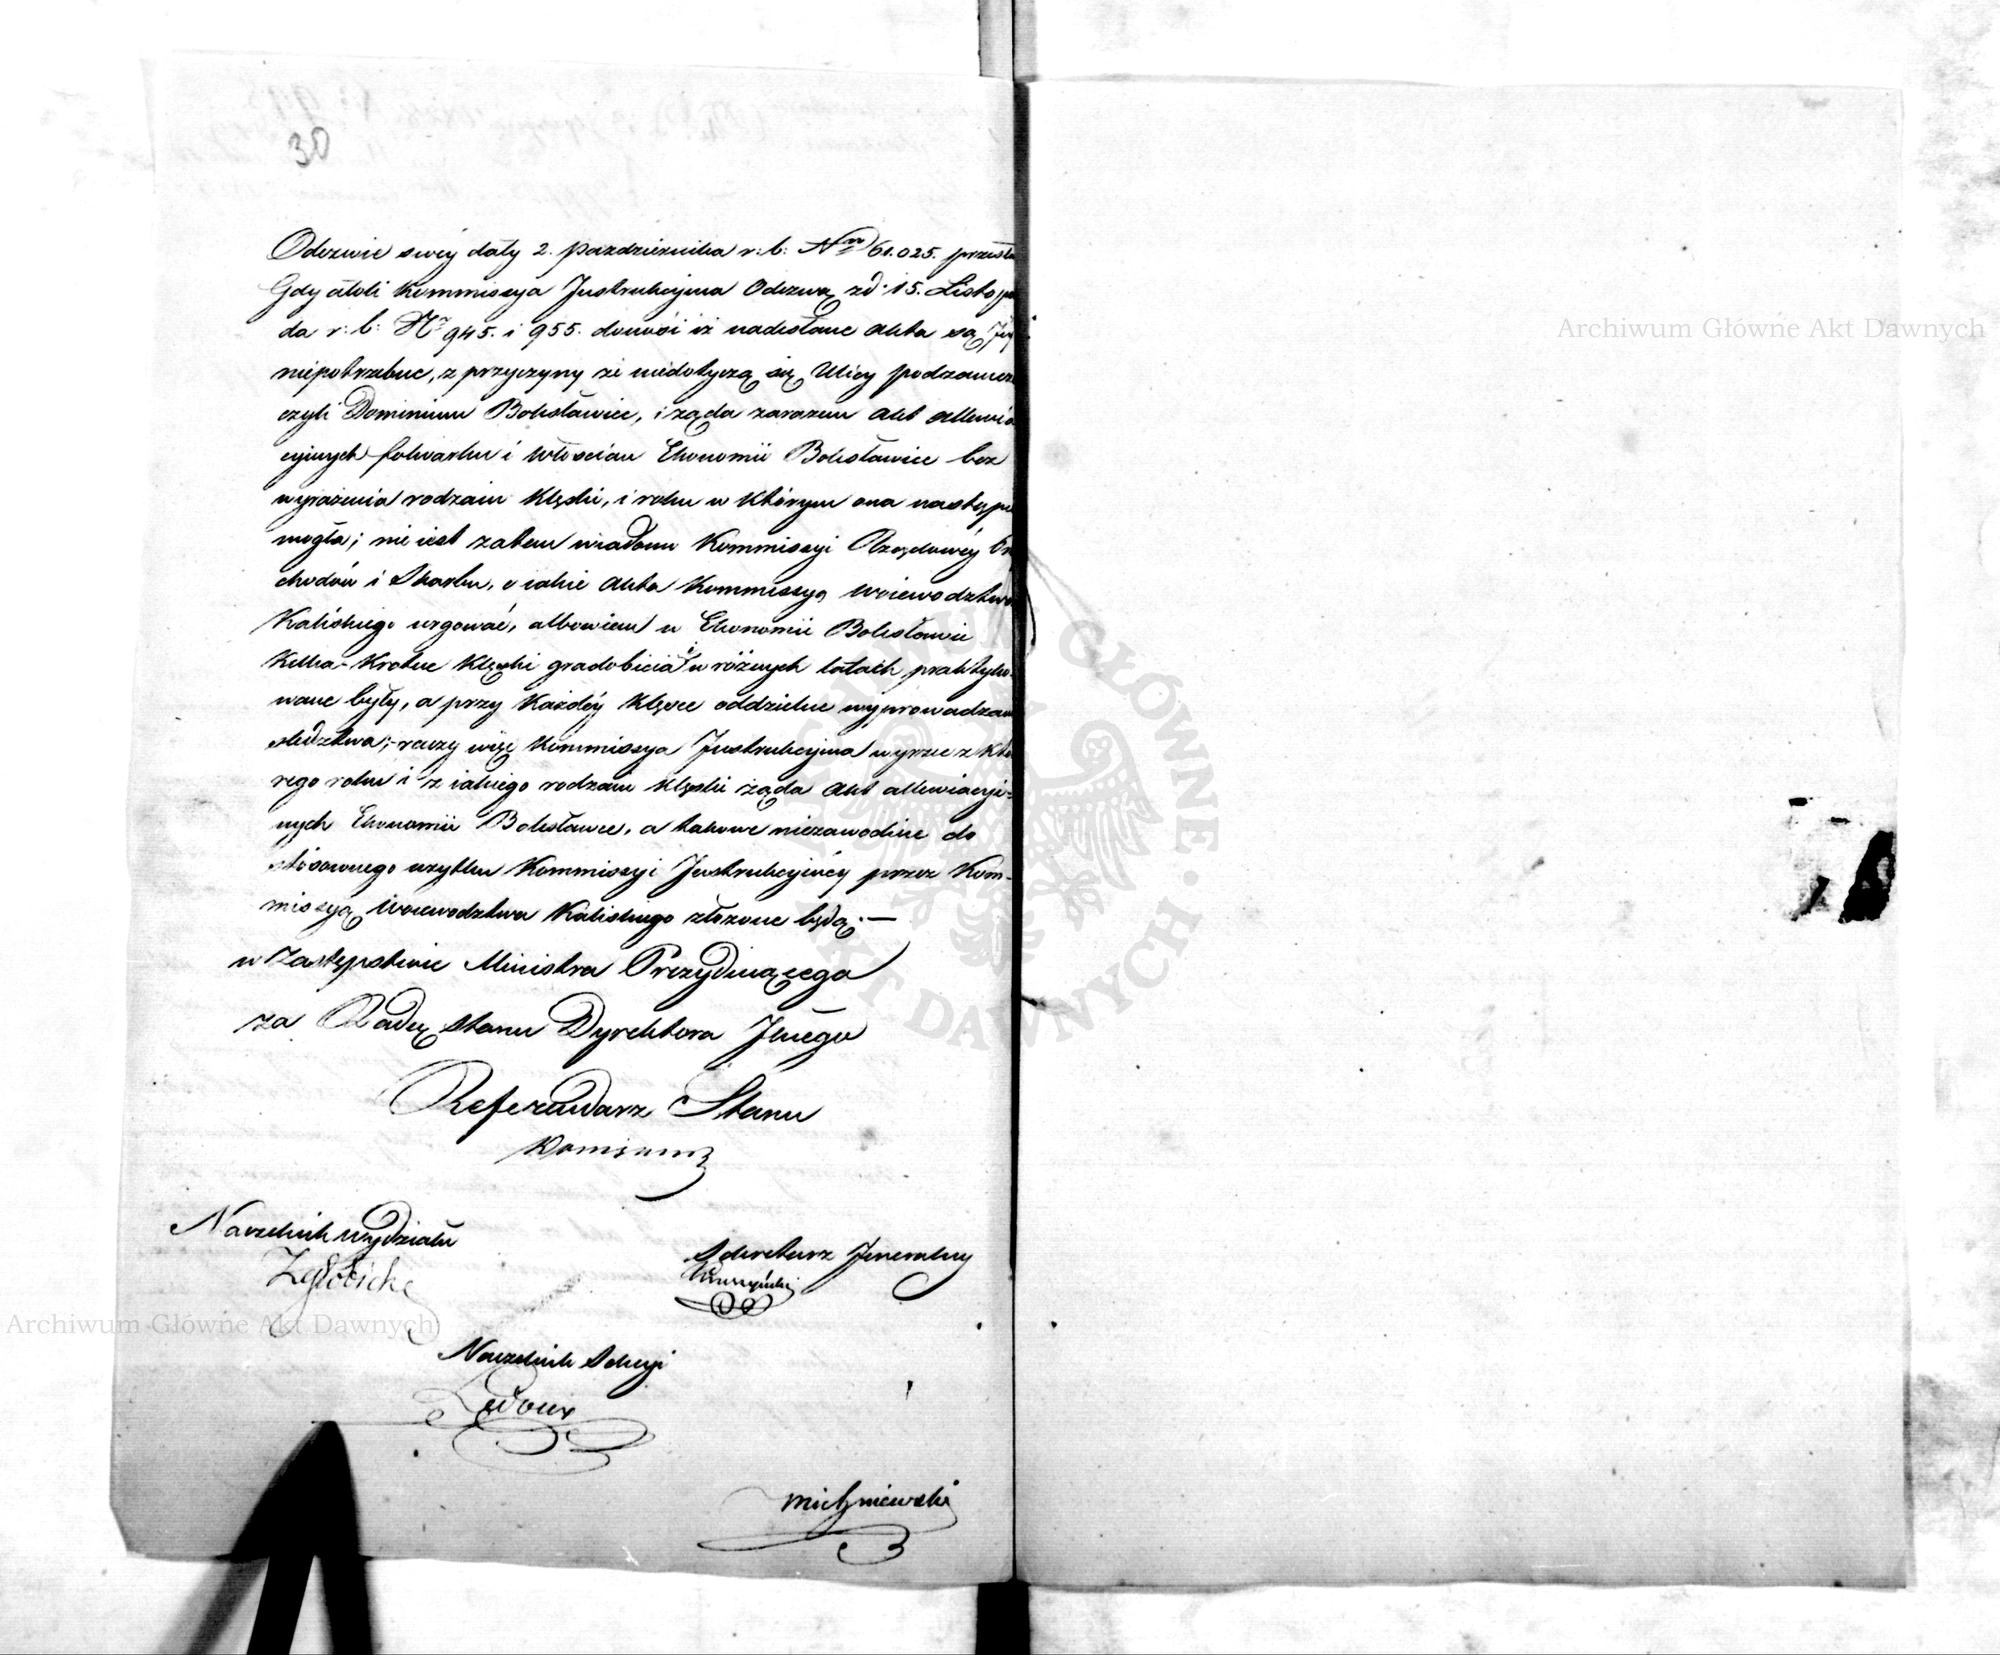 30
Odezwie swéy daty 2. Pazdziernika r: b: N<sup>ro</sup> 61.025. przesła
Gdy atoli Kommissya Instrukcyina Odezwą z d: 15. Listopa
da r: b: N<sup>r</sup> 945. i 955. donosi iż nadesłane Akta są Jey
niepotrzebne, z przyczyny że niedotyczą się Ulicy podzamcze
czyli Dominium Bolesławiec, i żąda zarazem Akt allewia
cyinych folwarku i Włoscian Ekonomii Bolesławiec bez
wyrażenia rodzaiu Klęski, i roku w Którym ona nastąpi
mogła; nie iest zatem wiadomo Kommissyi Rządowéy
chodów i Skarbu, o iakie Akta Kommissyą Woiewodztwa
Kaliskiego urgować, albowiem w Ekonomii Bolesławie
Kilka-Krotne Klęski gradobicia i w różnych latach praktyko-
wane były, a przy Każdéy Klęsce oddzielne wyprowadzan
sledztwa; raczy więc Kommissya Instrukcyina wyrzec z Któ
rego roku i z iakiego rodzaiu Klęski żąda Akt allewiacyi-
nych Ekonomii Bolesławiec, a takowe niezawodnie do
stósownego użytku Kommissyi Instrukcyinéy przez Kom-
missyą Woiewodztwa Kaliskiego złożone będą.—
w Zastępstwie Ministra Prezyduiącego
za Radcę Stanu Dyrektora Jlnego
Referendarz Stanu
Naczelnik Wydziału
Zgłobicki
Sekretarz Jeneralny
Naczelnik Sekcyi
Ledoux
Archiwum Główne Akt Dawnych
Archiwum Główne Akt Dawnych
ARCHIWUM GŁÓWNE AKT DAWNYCH